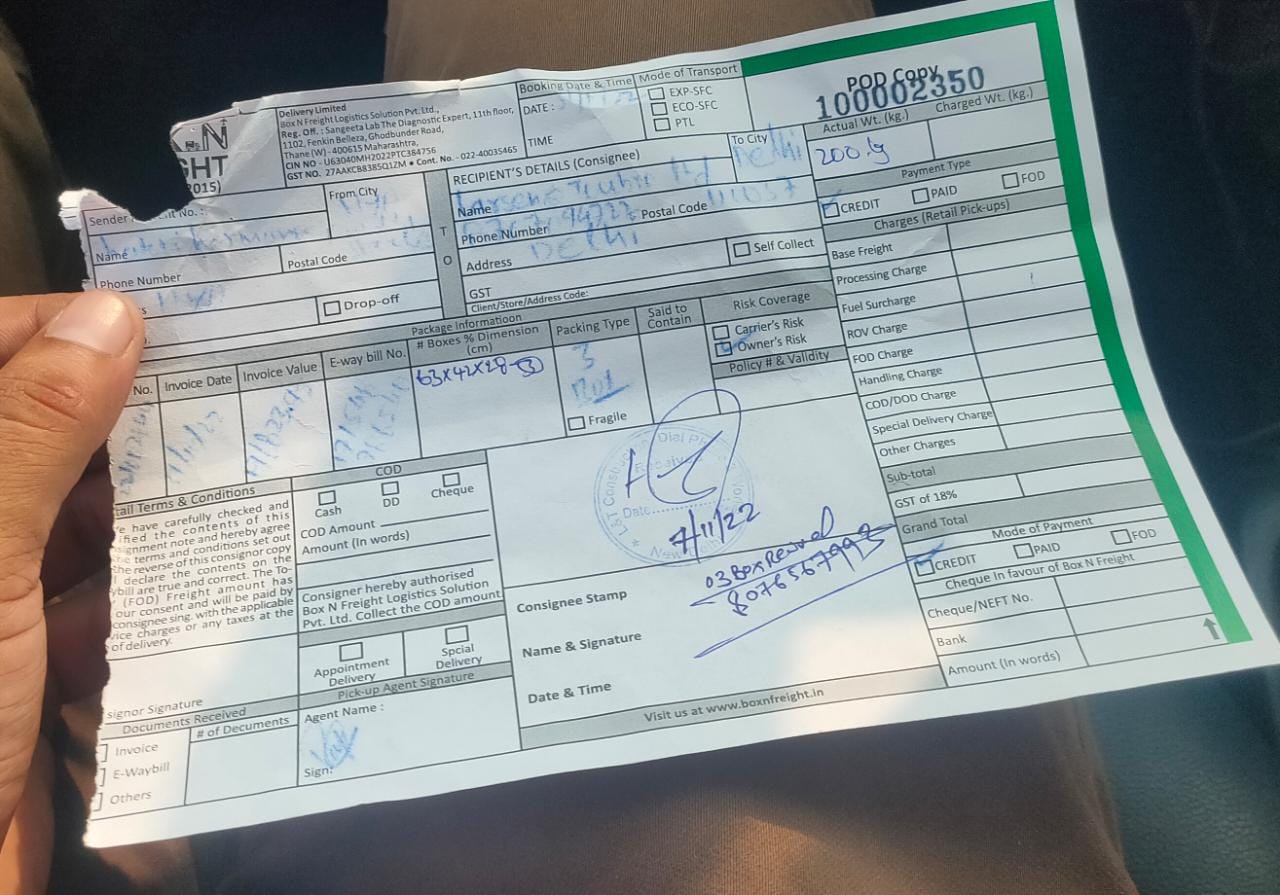 GHT
2015)
Delivery Limited
Box N Freight Logistics Solution Pvt. Ltd.,
Reg. Off. : Sangeeta Lab The Diagnostic Expert, 11th floor,
1102, Fenkin Belleza, Ghodbunder Road,
Thane (W) - 400615 Maharashtra,
CIN NO - U63040MH2022PTC384756
GST NO. 27AAKCB8385Q1ZM • Cont. No. - 022-40035465
Booking Date & Time
DATE :
TIME
Mode of Transport
EXP-SFC
ECO-SFC
PTL
POD Copy
100002350
Actual Wt. (kg.)
Charged Wt. (kg.)
200
Sender
Name
From City
Postal Code
Phone Number
Drop-off
TO
RECIPIENT'S DETAILS (Consignee)
To City
Delhi
Name
Phone Number
Postal Code
Address
Delhi
Self Collect
GST
Client/Store/Address Code:
Payment Type
CREDIT
PAID
FOD
Charges (Retail Pick-ups)
Base Freight
Processing Charge
Fuel Surcharge
ROV Charge
FOD Charge
Handling Charge
COD/DOD Charge
Special Delivery Charge
Other Charges
Sub-total
GST of 18%
Grand Total
Package Informatioon
No.
Invoice Date
Invoice Value
E-way bill No.
# Boxes % Dimension (cm)
63x42x28-3
Packing Type
3
Fragile
Said to Contain
Risk Coverage
Carrier's Risk
Owner's Risk
Policy # & Validity
tail Terms & Conditions
e have carefully checked and
ified the contents of this
ignment note and hereby agree
he terms and conditions set out
the reverse of this consignor copy
I declare the contents on the
ybill are true and correct. The To-
(FOD) Freight amount has
our consent and will be paid by
consignee sing. with the applicable
vice charges or any taxes at the
of delivery.
signor Signature
COD
Cash
DD
Cheque
COD Amount
Amount (In words)
Consigner hereby authorised
Box N Freight Logistics Solution
Pvt. Ltd. Collect the COD amount
Appointment Delivery
Spcial Delivery
Pick-up Agent Signature
Agent Name :
Sign:
Documents Received
# of Documents
Invoice
E-Waybill
Others
Date
7/11/22
03 Box
8076567993
Consignee Stamp
Name & Signature
Date & Time
Mode of Payment
CREDIT
PAID
FOD
Cheque In favour of Box N Freight
Cheque/NEFT No.
Bank
Amount (In words)
Visit us at www.boxnfreight.in